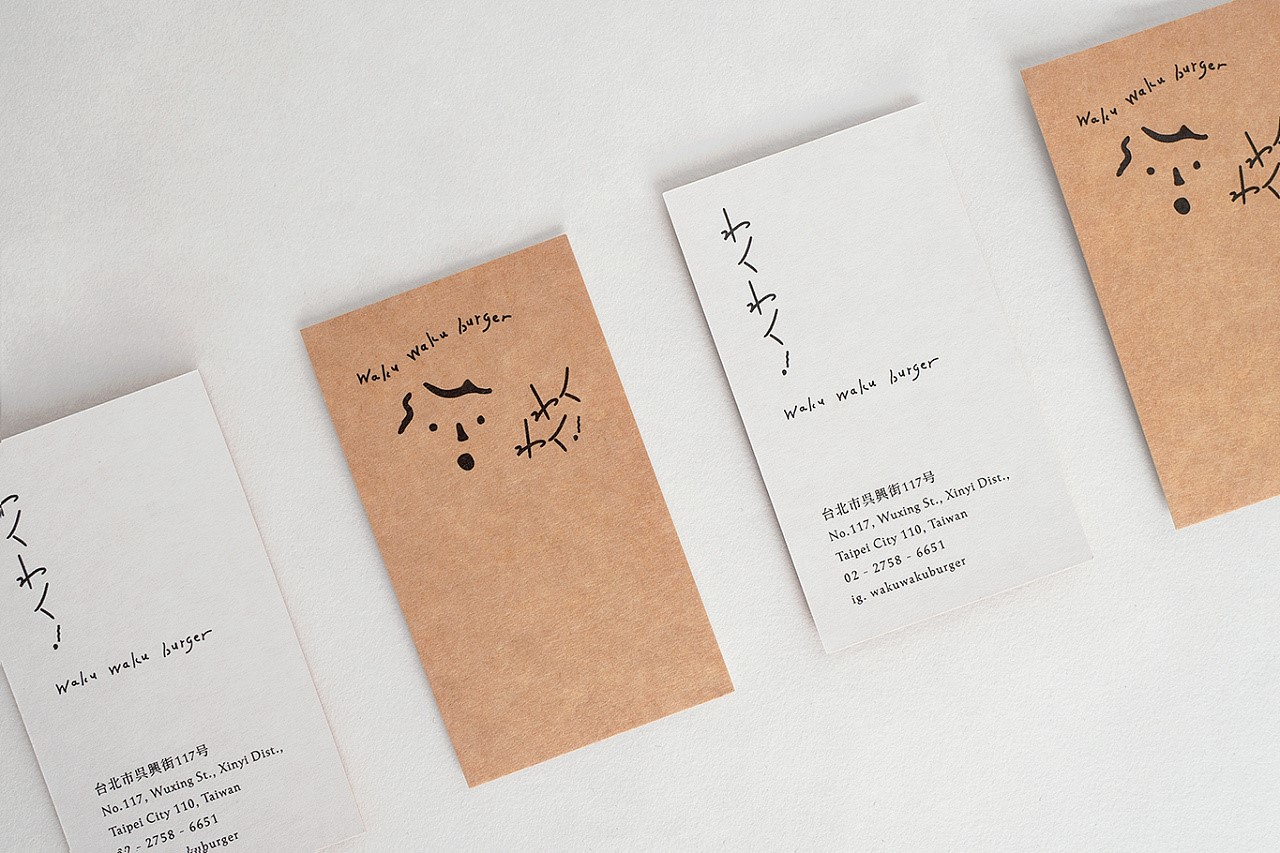 わくわく!
Waku waku burger
台北市呉興街117号
No.117, Wuxing St., Xinyi Dist.,
Taipei City 110, Taiwan
02 - 2758 - 6651
Waku waku burger
わく
わく!
わくわく!
Waku waku burger
台北市呉興街117号
No.117, Wuxing St., Xinyi Dist.,
Taipei City 110, Taiwan
02 - 2758 - 6651
ig. wakuwakuburger
Waku waku burger
わく
わく